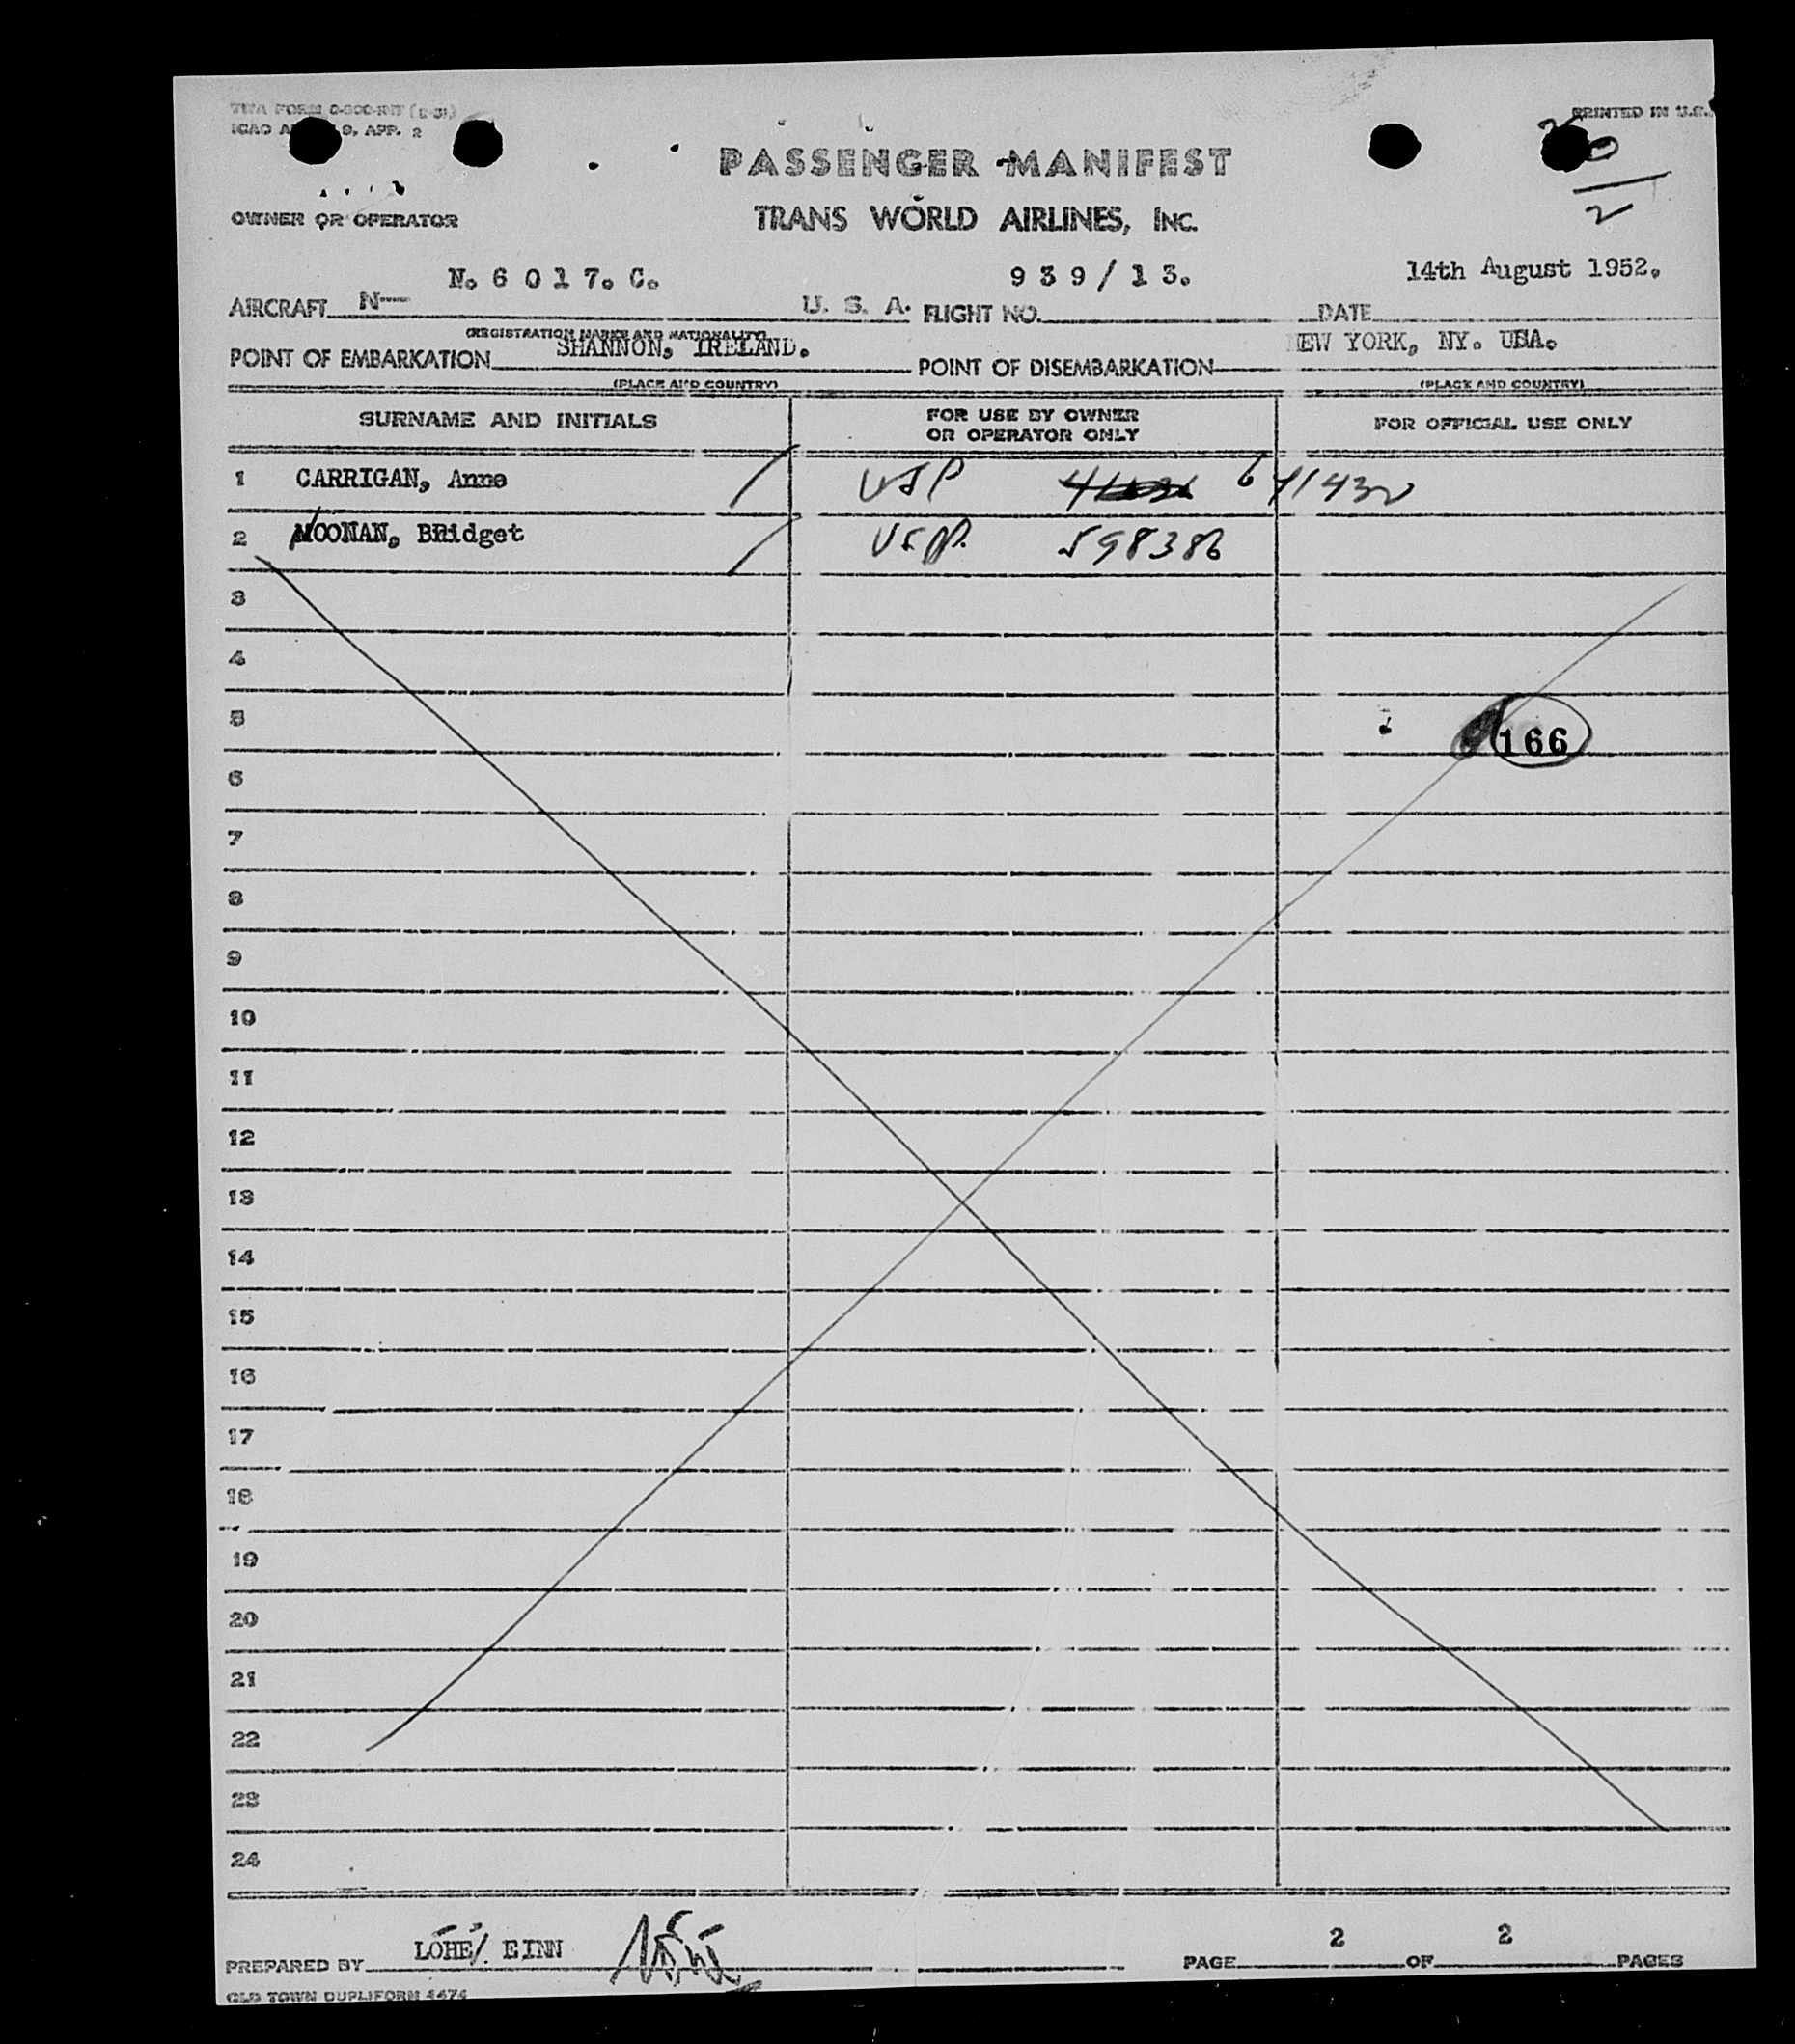 TWA FORM
ICAO 9, APP. 2
PRINTED IN U.S.
PASSENGER MANIFEST
OWNER OR OPERATOR
TRANS WORLD AIRLINES, INC.
2
N. 6 0 1 7. C.
9 3 9 / 1 3.
14th August 1952.
AIRCRAFT N U. S. A. FLIGHT NO. DATE
(REGISTRATION MARKS AND NATIONALITY)
SHANNON, IRELAND.
NEW YORK, NY. USA.
POINT OF EMBARKATION POINT OF DISEMBARKATION
(PLACE AND COUNTRY) (PLACE AND COUNTRY)
SURNAME AND INITIALS FOR USE BY OWNER OR OPERATOR ONLY FOR OFFICIAL USE ONLY
1 CARRIGAN, Anne USP 641432
2 MOONAN, Bridget USP 598386
3
4
5 166
6
7
8
9
10
11
12
13
14
15
16
17
18
19
20
21
22
23
24
PREPARED BY LOHE/. EINN PAGE 2 OF 2 PAGES
OLD TOWN DUPLIFORM 4474